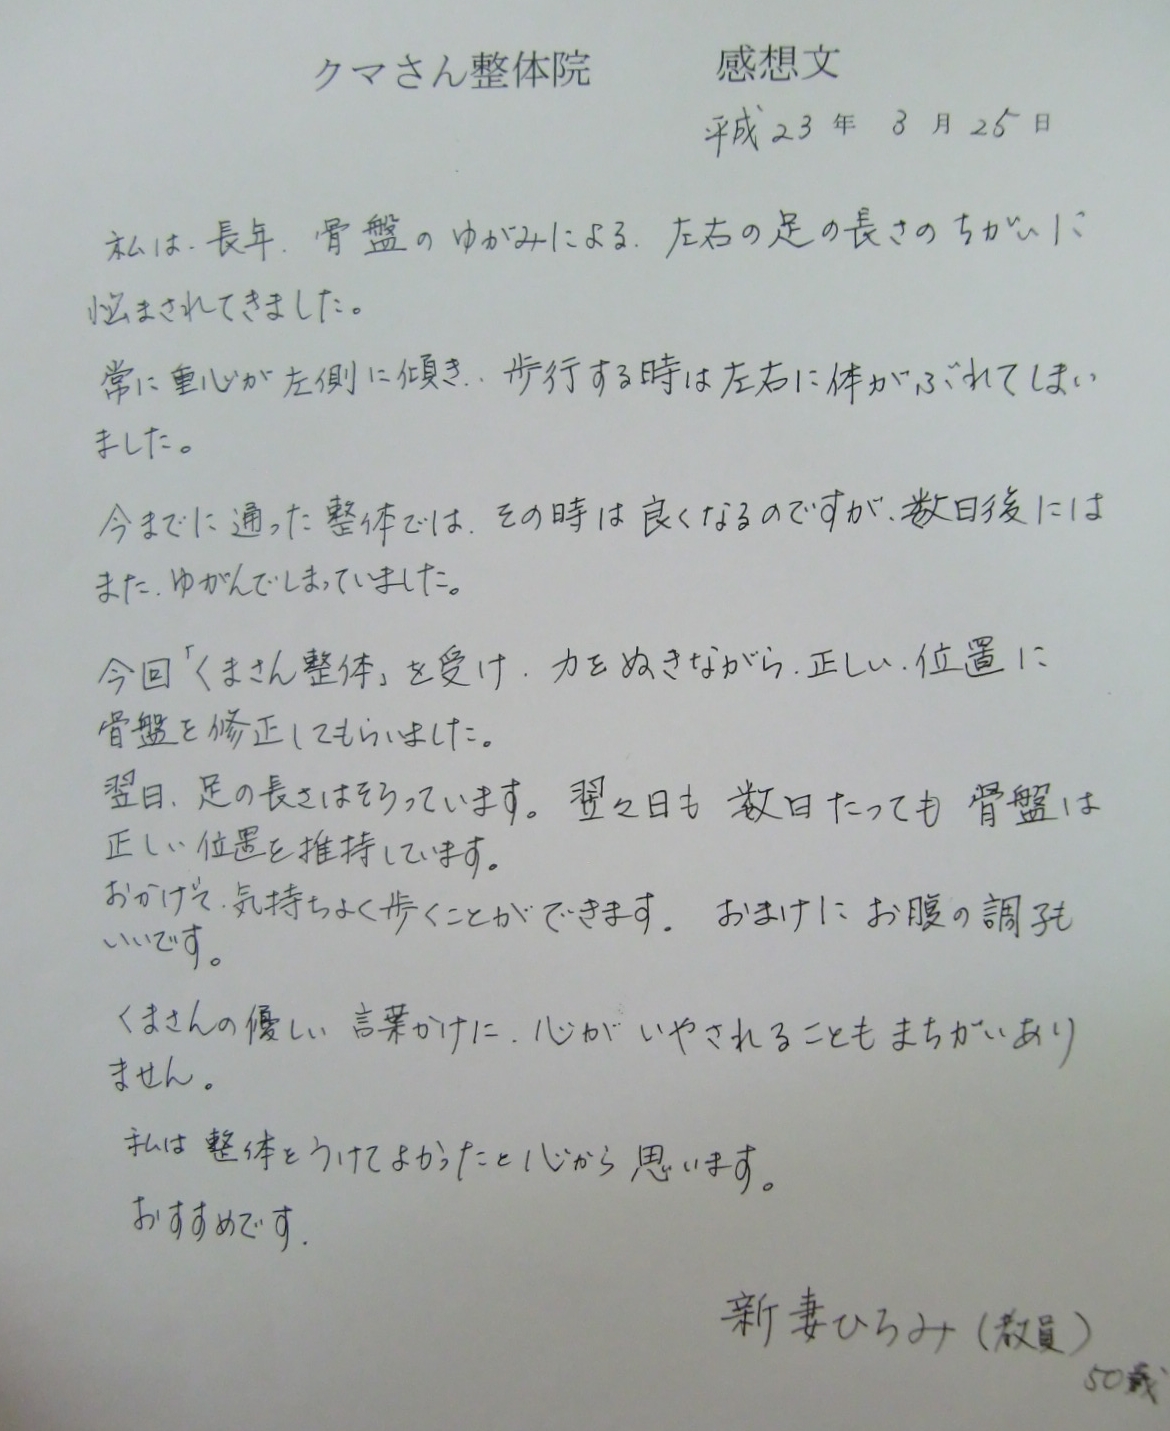 クマさん整体院 感想文
平成23年 3月25日
私は、長年、骨盤のゆがみによる、左右の足の長さのちがいに
悩まされてきました。
常に重心が左側に傾き、歩行する時は左右に体がぶれてしまい
ました。
今までに通った整体では、その時は良くなるのですが、数日後には
また、ゆがんでしまっていました。
今回「くまさん整体」を受け、力をぬきながら、正しい、位置に
骨盤を修正してもらいました。
翌日、足の長さはそろっています。翌々日も 数日たっても 骨盤は
正しい位置を推持しています。
おかげで、気持ちよく歩くことができます。 おまけに お腹の調子も
いいです。
くまさんの優しい 言葉かけに、心が いやされることも まちがいあり
ません。
私は 整体をうけてよかったと心から 思います。
おすすめです.
新妻ひろみ(教員)
50歳